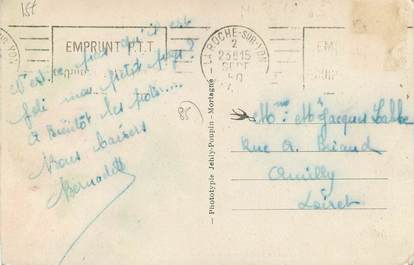 157
EMPRUNT P.T.T
LA ROCHE-SUR-YON
2
23H15
SEPT
50
N'est ce pas qu'il est
joli mon petit pays?
A bientôt les
Bons baisers
Bernadette
85
Phototypie Jehly-Poupin - Mortagne
Mme Mr Jacques Labbe
Rue A. Briand
Amilly
Loiret